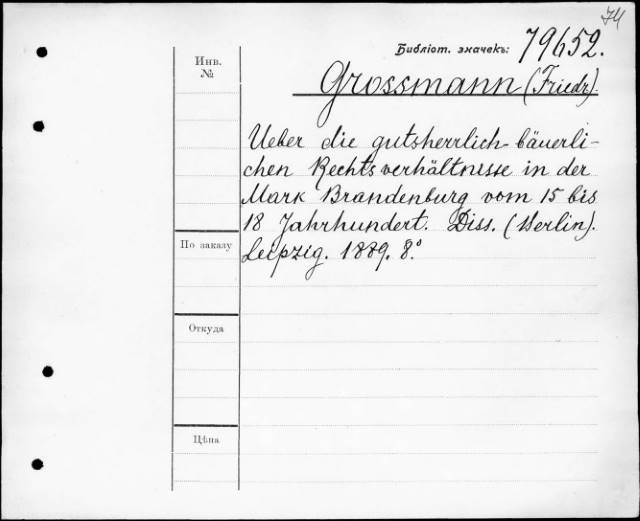 74
Библіот. значекъ: 79652.
Инв.
№
Grossmann (Friedr).
Ueber die gutsherrlich-bäuerli-
chen Rechtsverhältnisse in der
Mark Brandenburg vom 15 bis
18 Jahrhundert. Diss. (Berlin).
По заказу
Leipzig. 1889. 8.°
Откуда
Цѣна